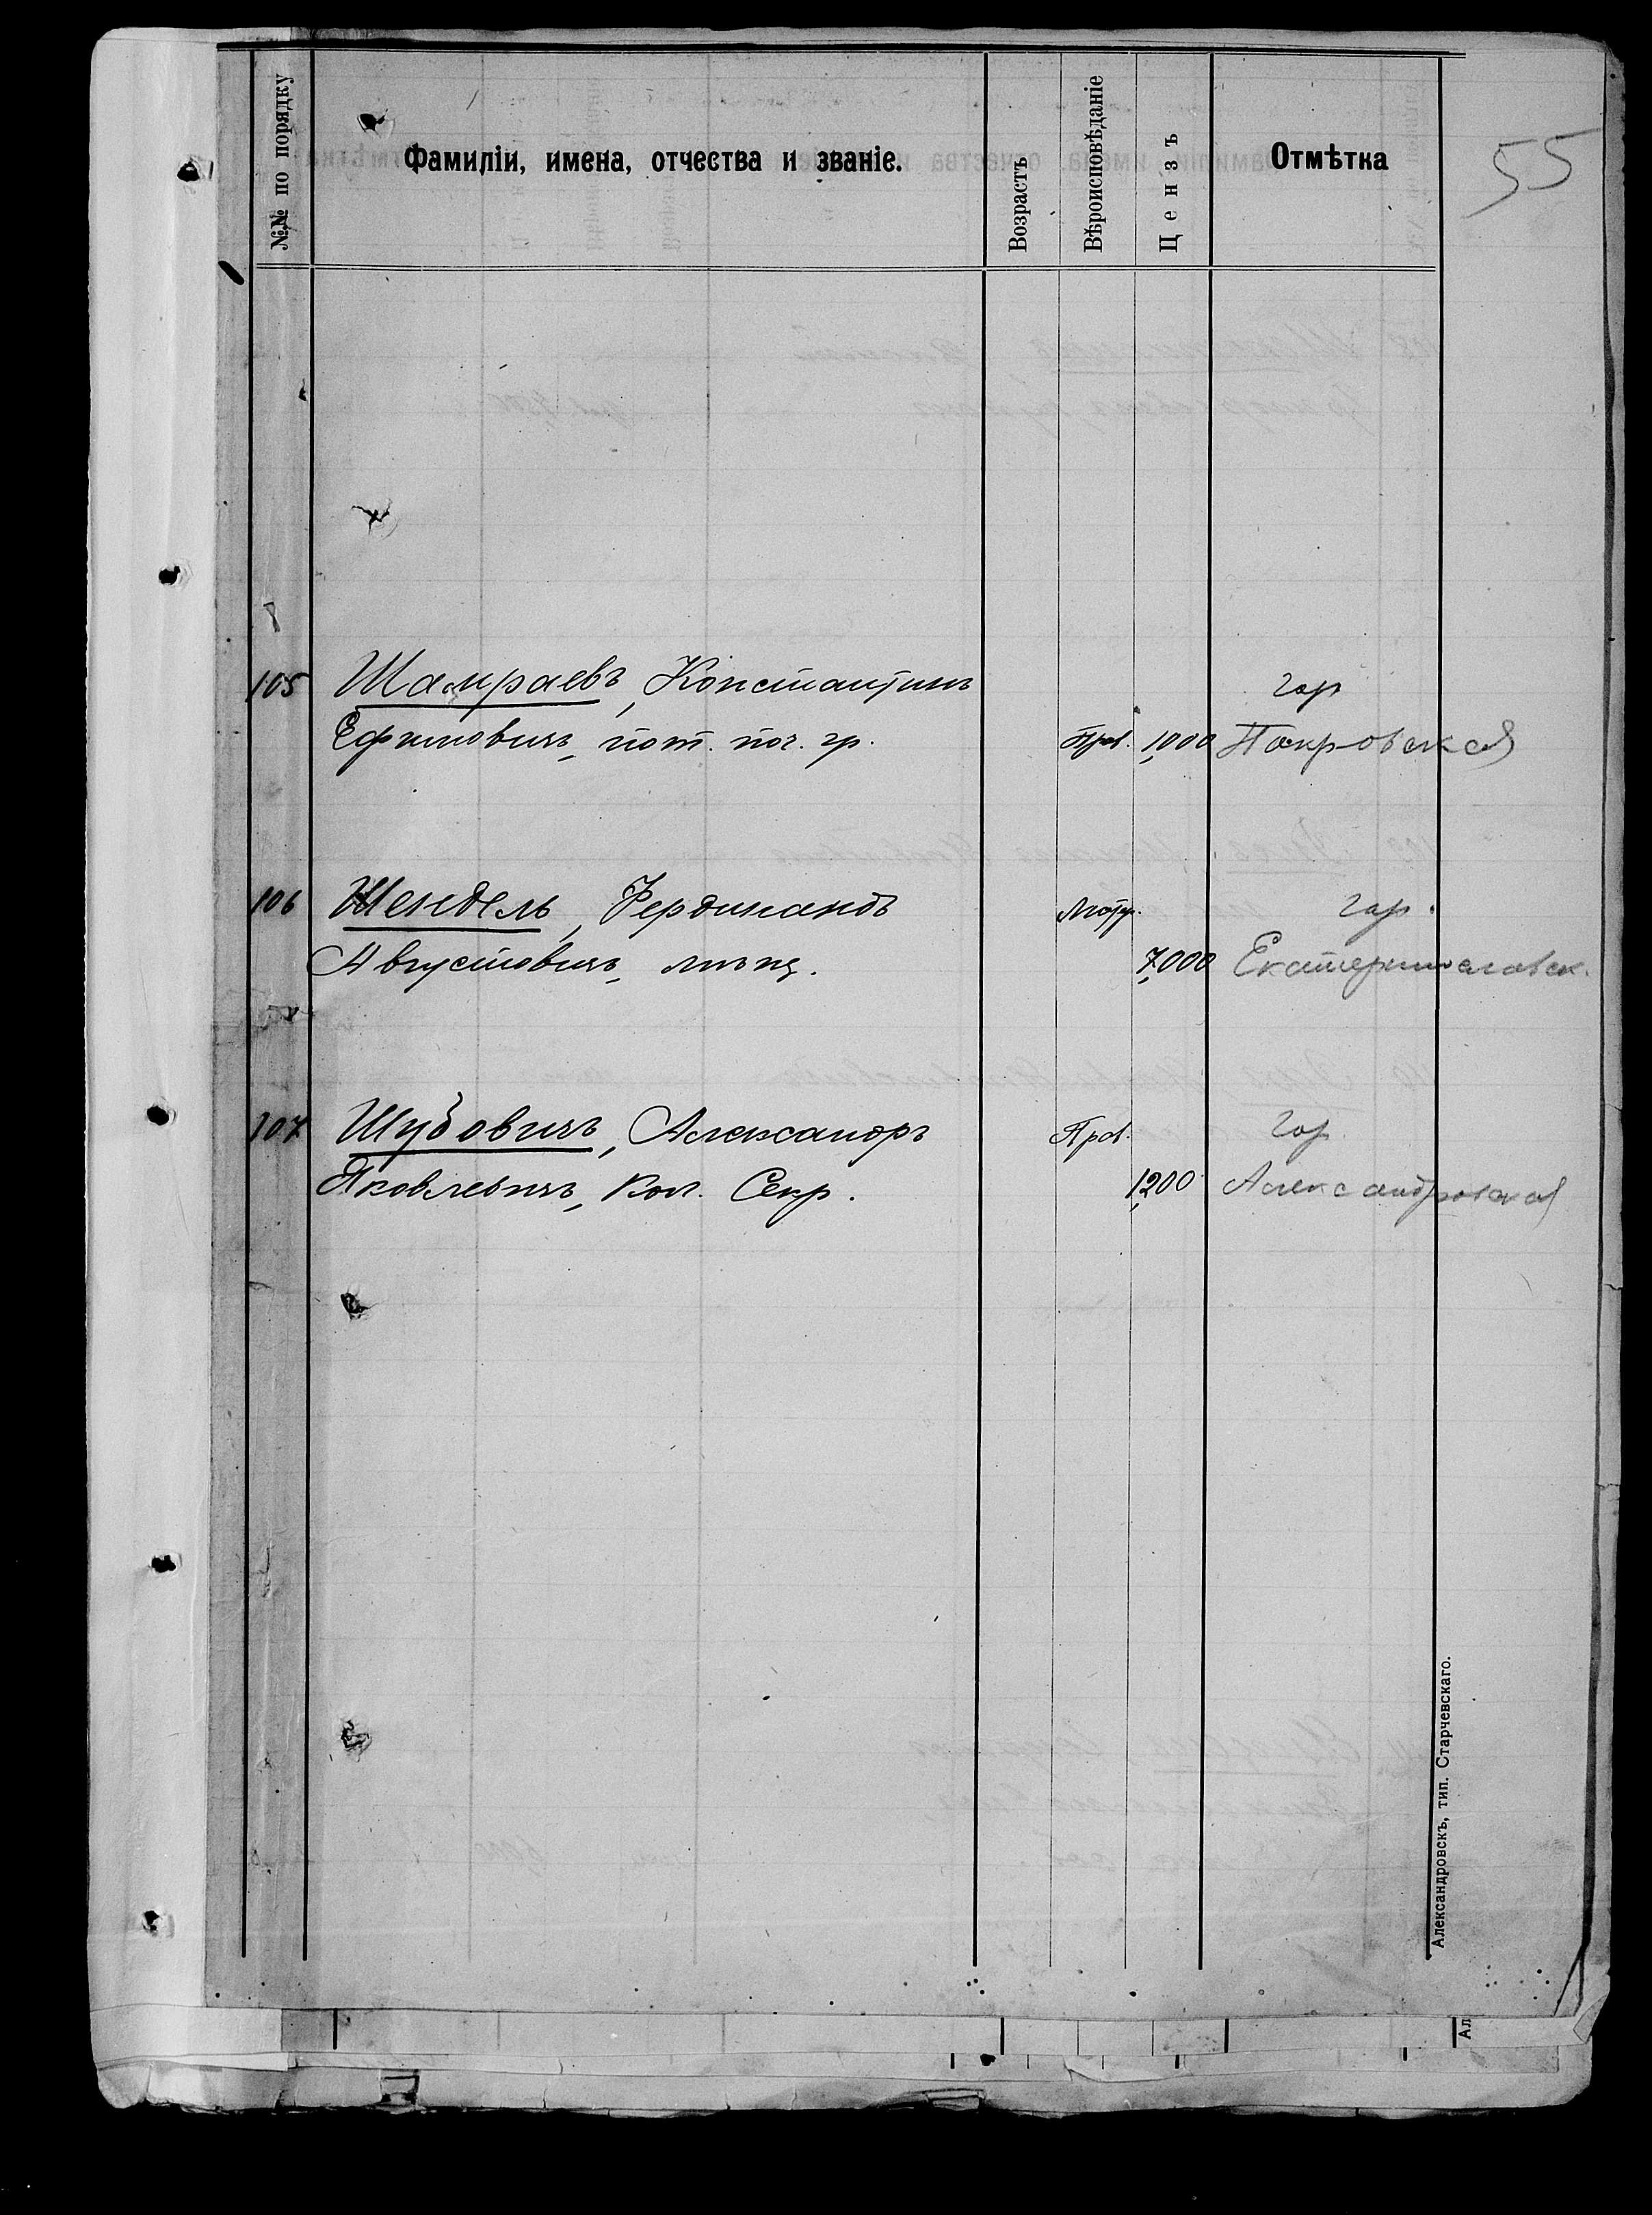 №№ по порядку
Фамиліи, имена, отчества и званіе.
Возрастъ
Вѣроисповѣданіе
Цензъ
Отмѣтка
55
105 Шамраевъ, Константинъ гор
Ефимовичъ, пот. поч. гр. Прав. 1,000 Покровская
106 Шендель, Фердинандъ Лютер. гор.
Августовичъ, мѣщ. 7,000 Екатеринославск.
107 Шубовичъ, Александръ Прав. гор
Яковлевичъ, Кол. Секр. 1,200 Александровская
Александровскъ, тип. Старчевскаго.
Ал